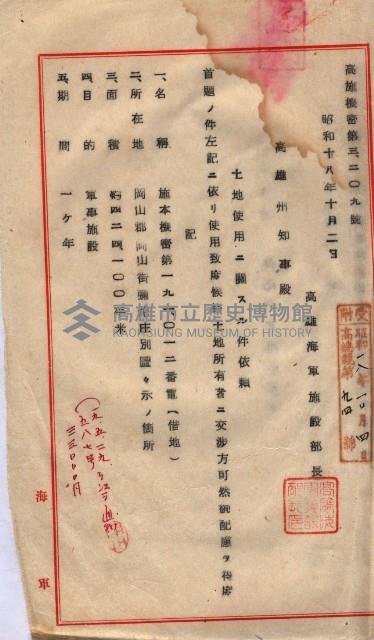 高施機密第三、二〇九號
昭和十八年十月二日
高雄海軍施設部長
高雄州知事殿
土地使用ニ關スル件依頼
首題ノ件左記ニ依リ使用致度候條土地所有者ニ交渉方可然御配慮ヲ得度
記
一、名稱 施本機密第一九〇〇一二番電(借地)
二、所在地 岡山郡岡山街 庄別圖々示ノ箇所
三、面積 約四二四一〇〇平米
四、目的 軍事施設
五、期間 一ヶ年
海軍
受附 昭和一八年一〇月四日
高雄機第九四號
高雄市立歷史博物館
KAOHSIUNG MUSEUM OF HISTORY